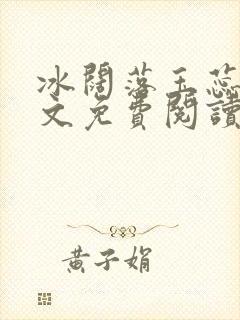 冰闊落玉蕊
文免費閱讀
黃子娟